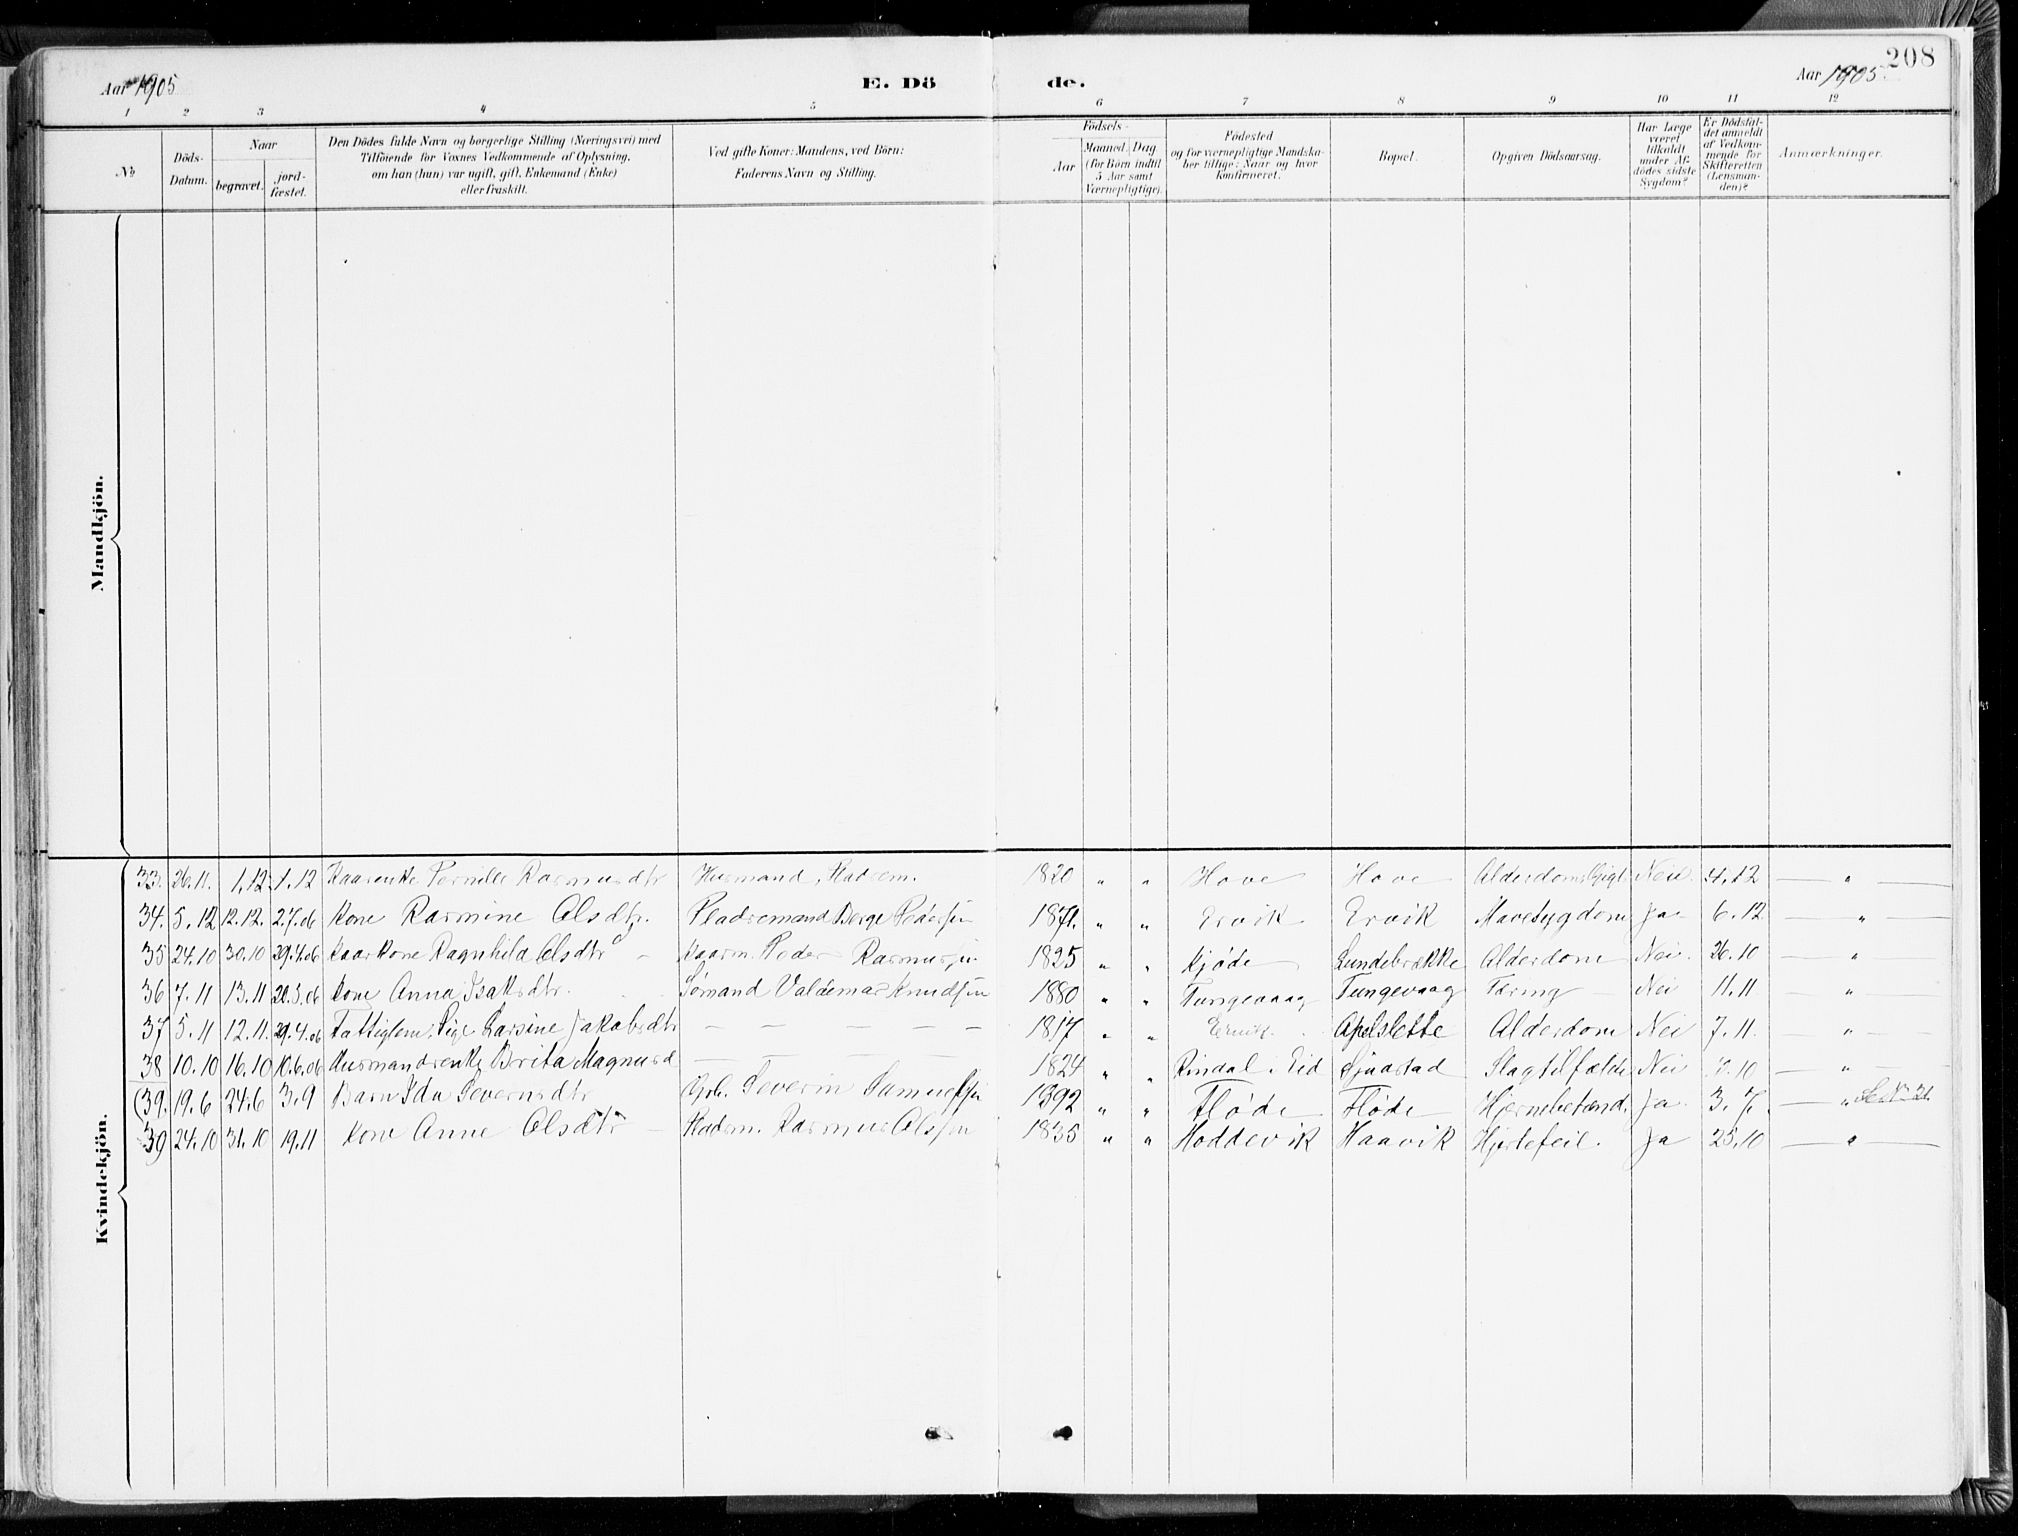 208
Aar 1905
E. Dö
de.
Aar 1905
1 2 3 4 5 6 7 8 9 10 11 12
No
Döds-Datum.
Naar
begravet.
jord-fæstet.
Den Dödes fulde Navn og borgerlige Stilling (Næringsvei) med
Tilföiende for Voxnes Vedkommende af Oplysning,
om han (hun) var ugift, gift, Enkemand (Enke)
eller fraskilt.
Ved gifte Koner: Mandens, ved Börn:
Faderens Navn og Stilling.
Födsels-
Aar
Maaned. Dag
(for Börn indtil
5 Aar samt
Værnepligtige).
Födested
og for værnepligtige Mandska-
ber tillige: Naar og hvor
konfirmeret.
Bopæl.
Opgiven Dödsaarsag.
Har Læge
været
tilkaldt
under Af-
dödes sidste
Sygdom?
Er Dödsfal-
det anmeldt
af Vedkom-
mende for
Skifteretten
(Lensman-
den)?
Anmærkninger.
Mandkjön.
Kvindekjön.
33. 26.11. 1.12 1.12 Kaarenke Pernille Rasmusdtr Husmand, Pladsem. 1820 " " Hove Hove Alderdom, Gigt Nei 4.12 — " —
34. 5.12 12.12. 2.7.06 Kone Rasmine Olsdtr. Pladsemand Børge Pedersen 1871. " " Ervik Ervik Mavesygdom Ja 6.12 — " —
35 24.10 30.10 29.4.06 Kaarkone Ragnhild Olsdtr — Kaarm. Peder Rasmussen 1825 " " Kjøde Lundebrekke Alderdom Nei. 26.10 — "
36 7.11 13.11 20.5.06 Kone Anna Isaksdtr. Sømand Valdemar Knudsen 1880 " " Tungevaag Tungevaag Tæring — Nei 11.11 — " —
37 5.11 12.11. 29.4.06 Fattiglem, Pige Larsine Jakobsdtr — — — — — 1817 " " Ervik Apelslette Alderdom Nei 7.11. — " —
38 10.10 16.10 10.6.06 Husmandsenke Brita Magnusd — — — — 1824 " " Rindal i Eid Sjaastad Slagtilfælde Nei 10 — " —
(39. 19.6 24.6 3.9 Barn Ida Severinsdtr Gbr. Severin Samuelsen 1892 " " Fløde Fløde Hjernebetænd. Ja 3.7. — " Se No 21
39 24.10 31.10 19.11 Kone Anne Olsdtr — Pladsm. Rasmus Olsen 1835 " " Hoddevik Haavik Hjertefeil. Ja 25.10 — " —